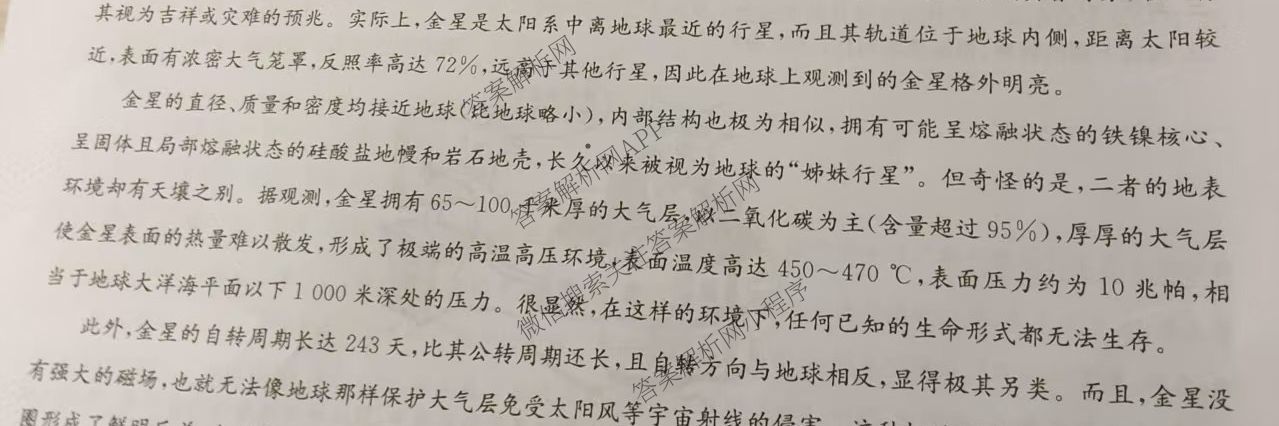 其视为吉祥或灾难的预兆。实际上,金星是太阳系中离地球最近的行星,而且其轨道位于地球内侧,距离太阳较
近,表面有浓密大气笼罩,反照率高达72%,远高于其他行星,因此在地球上观测到的金星格外明亮。
金星的直径、质量和密度均接近地球(比地球略小),内部结构也极为相似,拥有可能呈熔融状态的铁镍核心、
呈固体且局部熔融状态的硅酸盐地幔和岩石地壳,长久以来被视为地球的“姊妹行星”。但奇怪的是,二者的地表
环境却有天壤之别。据观测,金星拥有65～100千米厚的大气层,以二氧化碳为主(含量超过95%),厚厚的大气层
使金星表面的热量难以散发,形成了极端的高温高压环境,表面温度高达450～470 ℃,表面压力约为10兆帕,相
当于地球大洋海平面以下1 000米深处的压力。很显然,在这样的环境下,任何已知的生命形式都无法生存。
此外,金星的自转周期长达243天,比其公转周期还长,且自转方向与地球相反,显得极其另类。而且,金星没
有强大的磁场,也就无法像地球那样保护大气层免受太阳风等宇宙射线的侵害
图形成了鲜明
答案解析网
答案解析网APP
微信搜索关注答案解析网
答案解析网小程序